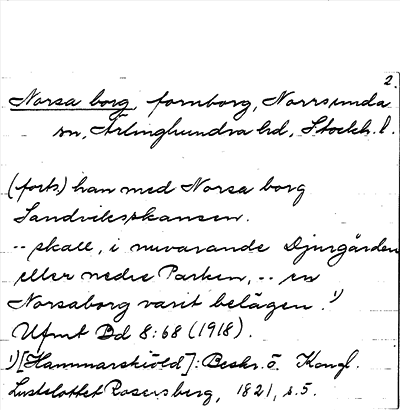 2.
Norsa borg, fornborg, Norrsunda
sn, Ärlinghundra hd, Stockh. l.
(forts.) han med Norsa borg
Sandviksskansen.
-- skall, i nuvarande Djurgården
eller nedre Parken, -- en
Norsaborg varit belägen. ¹)
Ufmt Dd 8:68 (1918).
¹) [Hammarskiöld]: Beskr. ö. Kongl.
Lustslottet Rosersberg, 1821, s. 5.